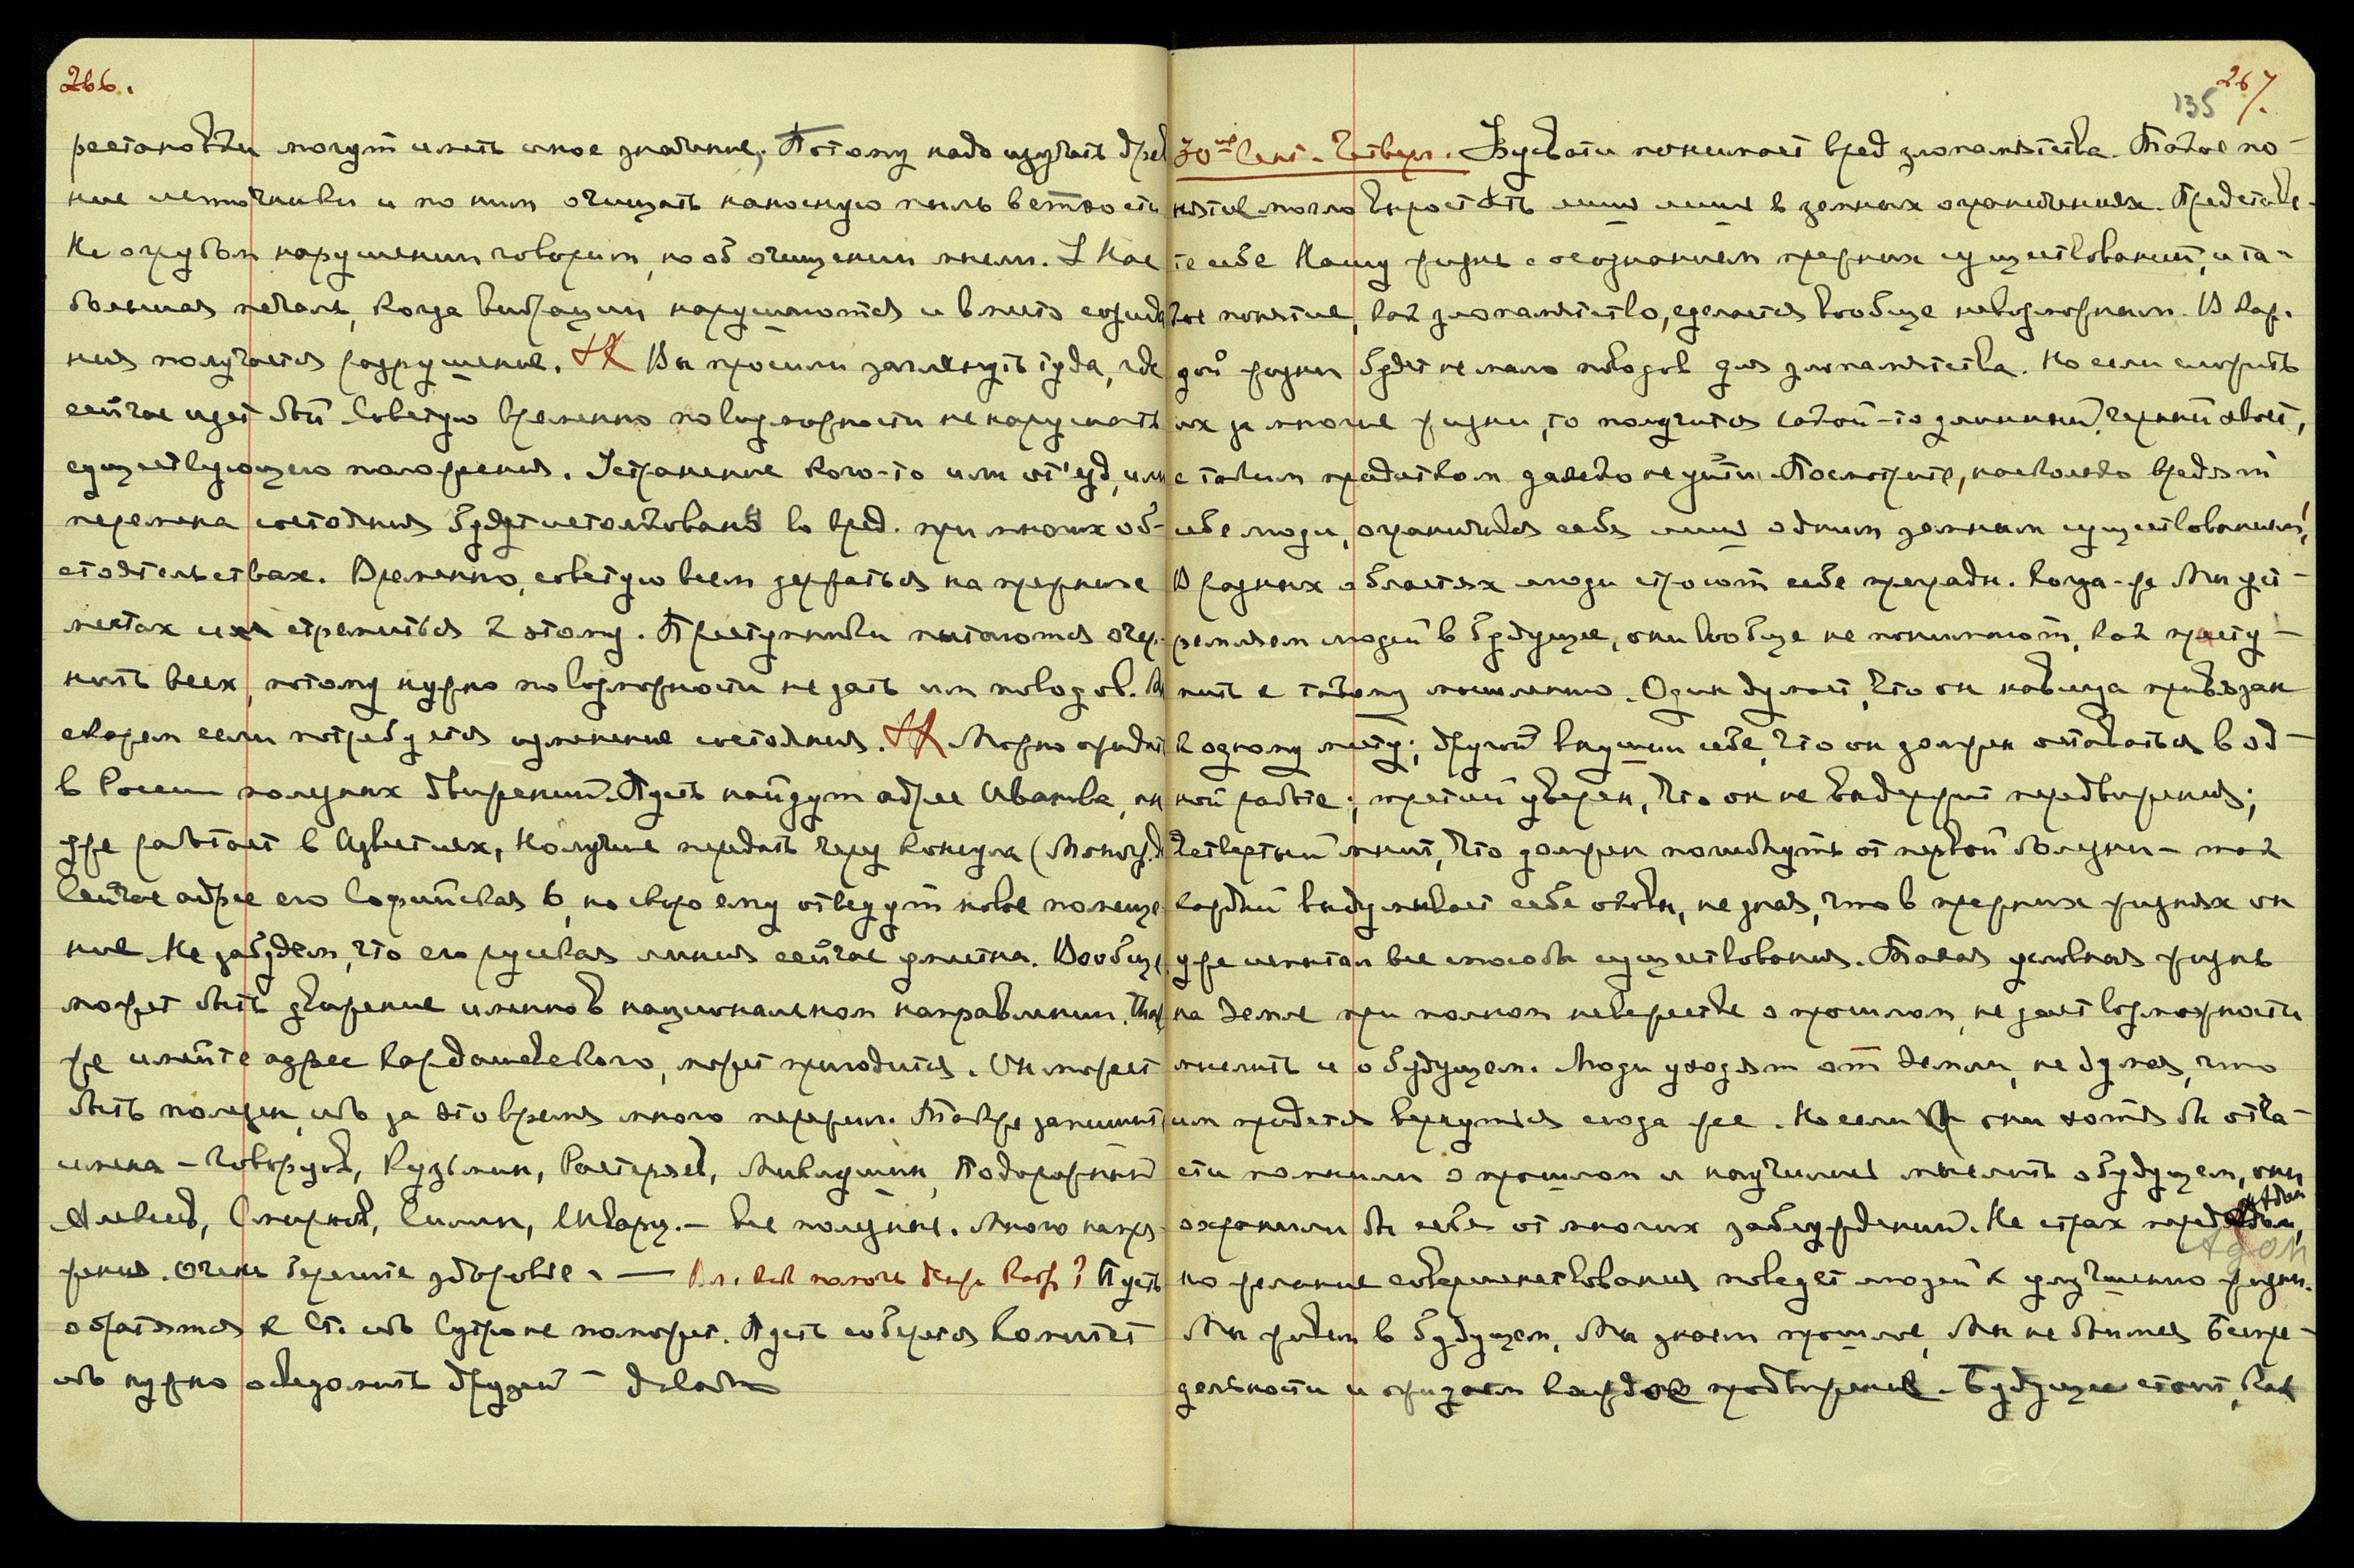 266.
рестановки могут иметь иное значение. Потому надо изучать древ
ние источники и по ним очищать наносную пыль ветхости
Не о грубом нарушении говорим, но об очищении мысли. У Нас
большая печаль, когда вибрации нарушаются и вместо созида
ния получается разрушение. Вы просили заглянуть туда, где
сейчас идет бой. Советую временно по возможности не нарушать
существующего положения. Устранение кого-то или от'езд, или
перемена состояния будет истолкована во вред. при многих об-
стоятельствах. Временно, советую всем держаться на прежних
местах и стремиться к этому. Преступники пытаются очер-
нить всех, потому нужно по возможности не дать им поводов.
скорем если потребуется изменение состояния. Можно ожидать
в России полезных движений. Пусть найдут адрес Иванова, он
уже работает в Известиях, Но лучше передать через Консула
Сейчас адрес его Софийская 6, но скоро ему отведут новое помеще
ние. Не забудем, что его русская линия сейчас уместна. Вообще
может быть движение именно в национальном направлении.
же имейте адрес Кардашевского, может пригодится. Он может
быть полезен, ибо за это время много пережил. Также запишите
имена – Говорухов, Кузьмин, Растеряев, Миклушин, Подорожный
Алексеев, Смирнов, Силин, Шварц. – Все полезные. Много напря
жения. Очень берегите здоровье. — Вл. как помочь Кар? Пусть
обратятся к Ст. ибо Сутро не поможет. Пусть соберется Комитет
ибо нужно осведомить друзей –
267.
135
30ое Сент. Четверг. Бузвати понимает вред злопамятства. Такое по-
нятие могло вырастать лишь лишь в земных ограничениях. Представь-
те себе Нашу жизнь с осознанием прежних существований, и та-
кое понятие, как злопамятство, сделается вообще невозможным. В каж-
дой жизни будет не мало поводов для злопамятства. Но если сложить
их за многие жизни, то получится какой-то длинный, черный хвост,
с таким придатком далеко не уйти. Посмотрите, насколько вредят
себе люди, ограничивая себя лишь одним земным существованием!
В разных областях люди строют себе преграды. Когда-же Мы уст-
ремляем людей в будущее, они вообще не понимают, как присту-
пить к такому мышлению. Один думает, что он навсегда привязан
к одному месту; другой внушил себе, что он должен оставаться в од-
ной работе; третий уверен, что он не выдержит передвижения;
четвертый мнит, что должен погибнуть от первой болезни – так
каждый выдумывает себе оковы, не зная, что в прежних жизнях он
уже испытал все способы существования. Такая условная жизнь
на Земле при полном невежестве о прошлом, не дает возможности
мыслить и о будущем. Люди уходят от Земли, не думая, что
им придется вернуться сюда же. Но если они хотя бы отча-
сти помнили о прошлом и научились мыслить о будущем, они
охранили бы себя от многих заблуждений. Не страх перед адом,
Адом
но желание совершенствования поведет людей к улучшению жизни.
Мы живем в будущем, Мы знаем прошлое, Мы не боимся Беспре-
дельности и ожидаем каждое продвижение. Будущее стоит, как